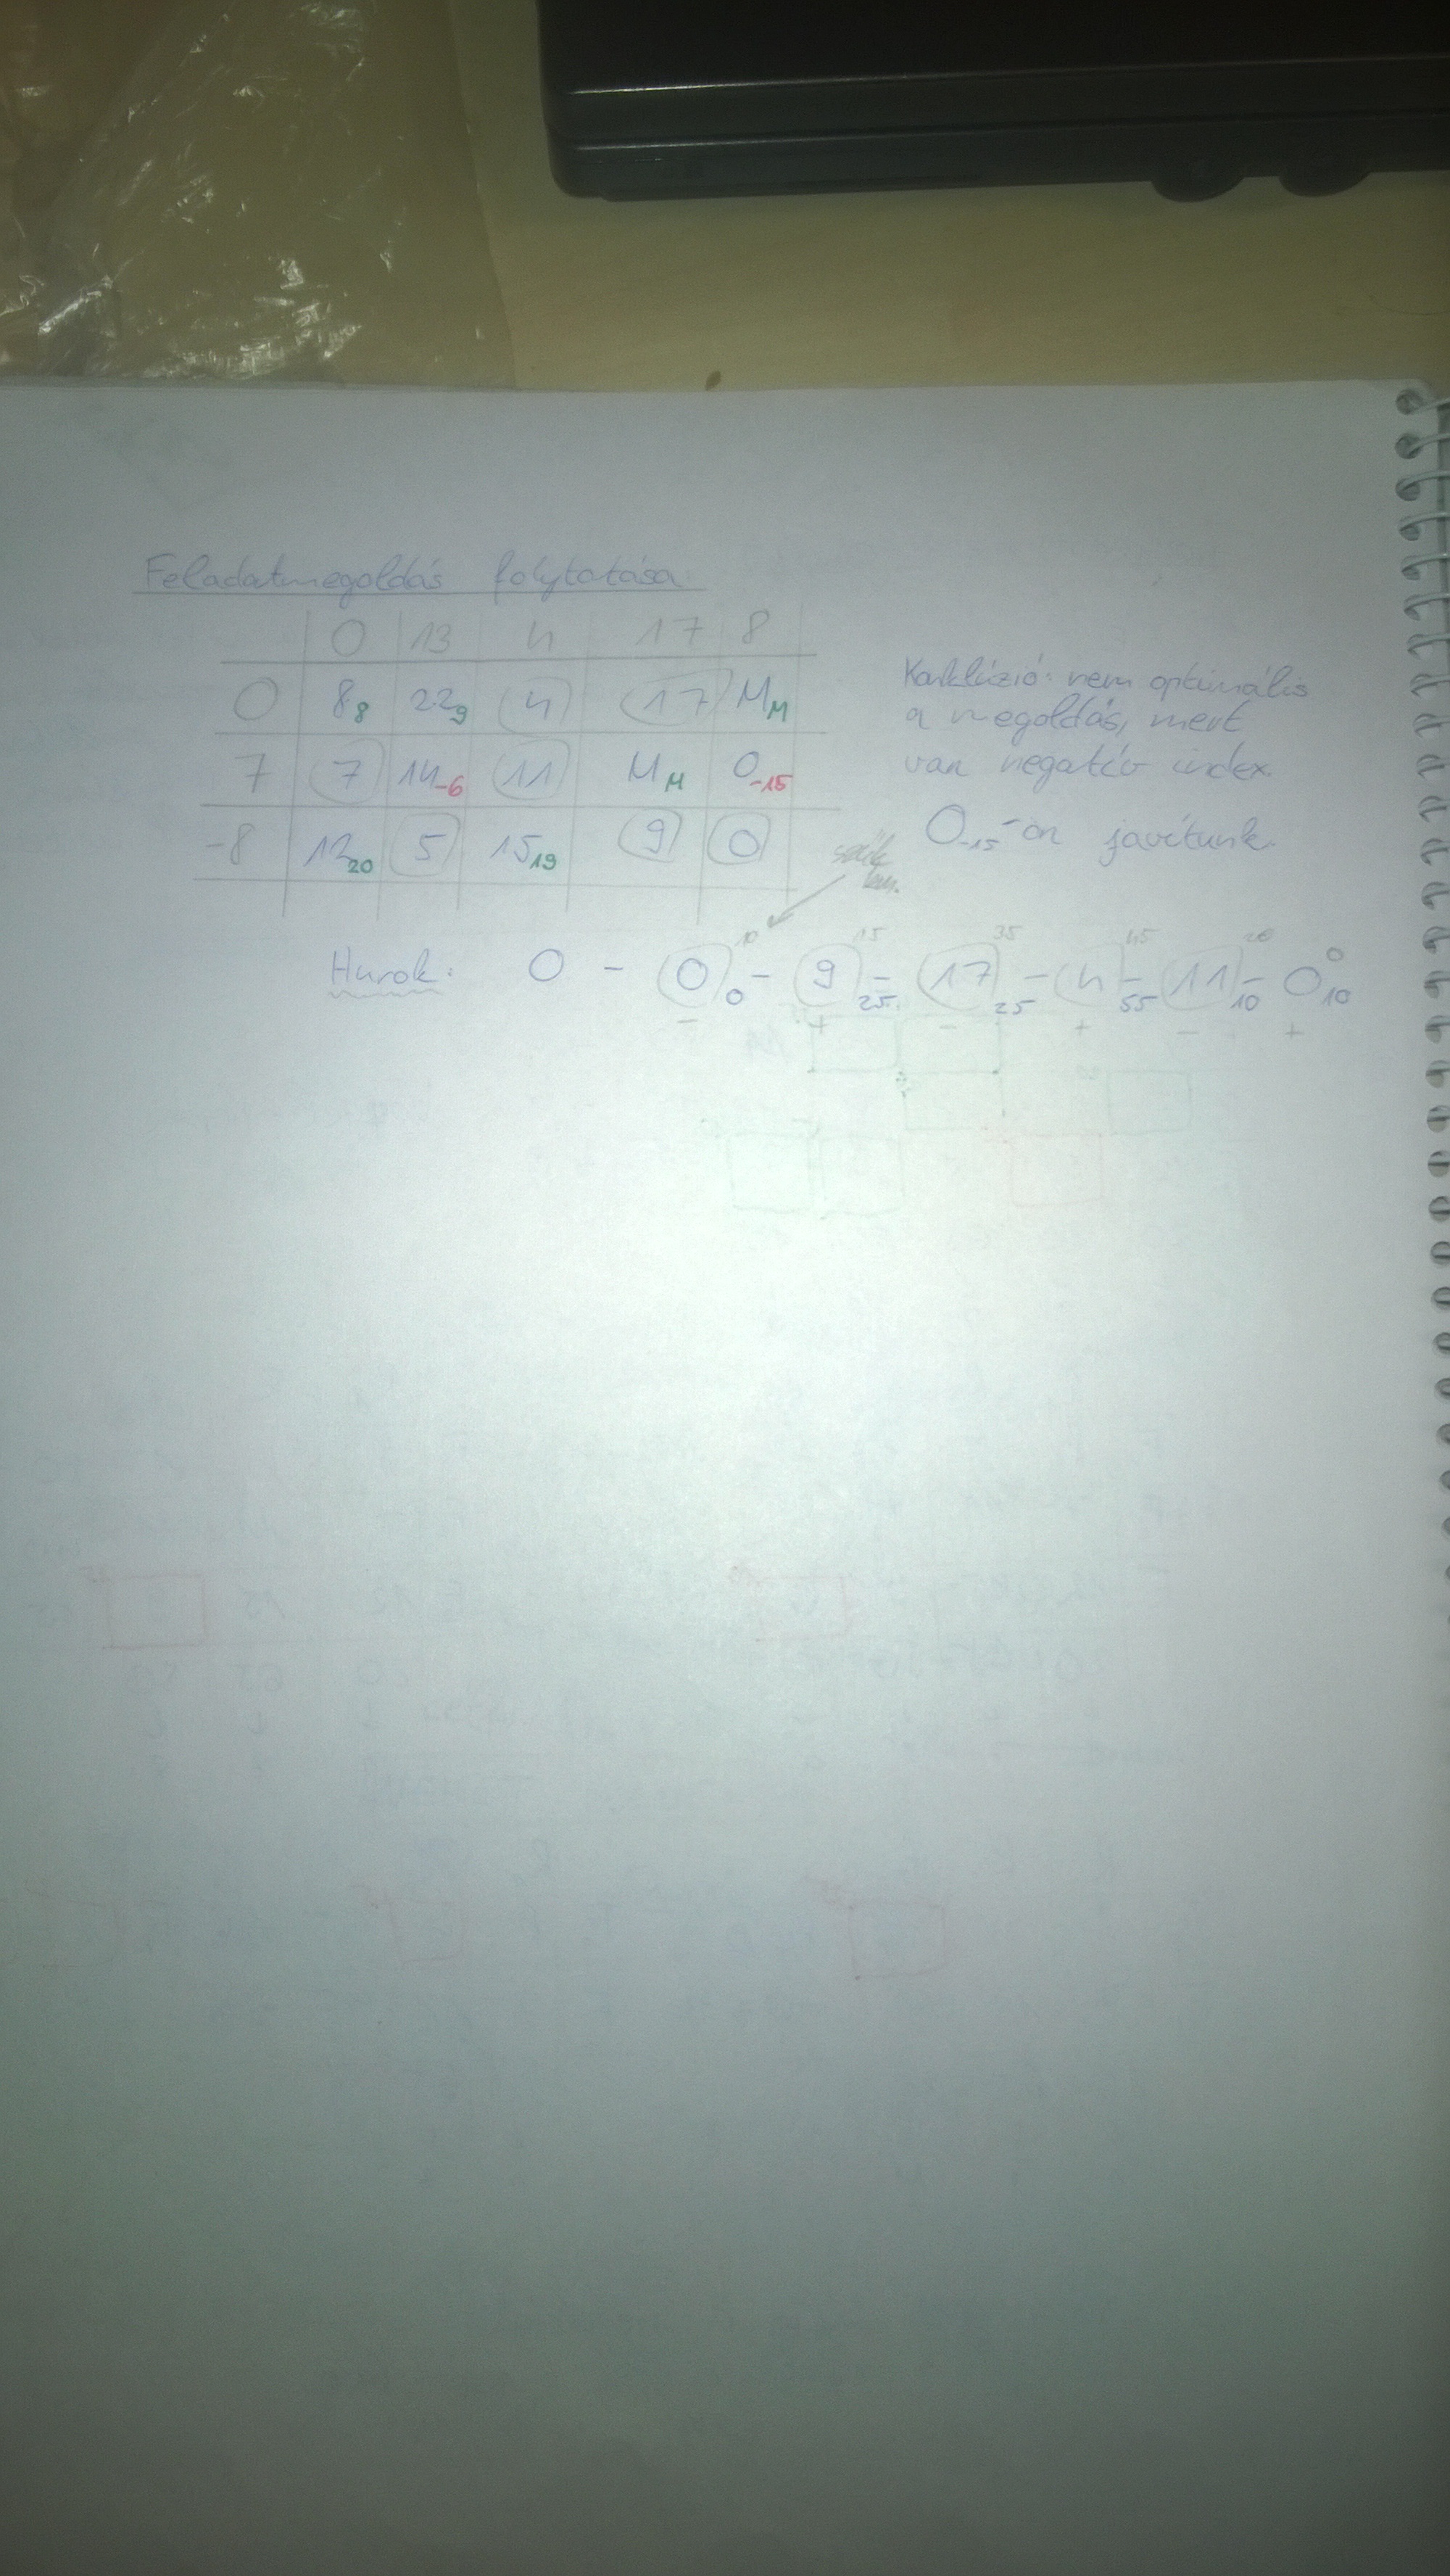 Feladatmegoldás folytatása:
0 13 4 17 8
0 8 8 22 9 4 17 M M
7 7 14 -6 11 M M 0 -15
-8 12 20 5 15 19 9 0
Konklúzió: nem optimális
a megoldás, mert
van negatív index.
0 -15 -ön javítunk.
10 15 35 45 20 0
Hurok: 0 - 0 0 - 9 25 - 17 25 - 4 55 - 11 10 - 0 10
- + - + - +